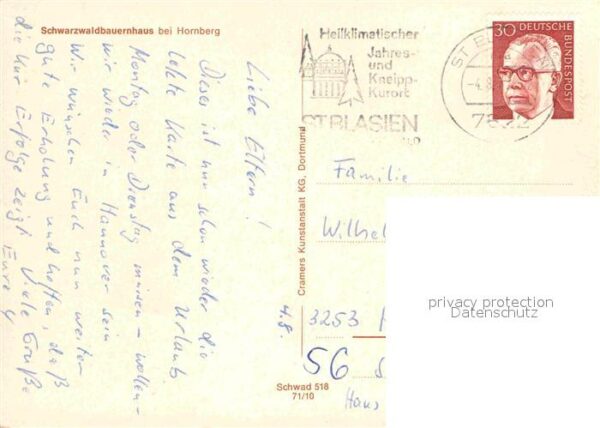 Schwarzwaldbauernhaus bei Hornberg
Liebe Eltern!
Dieses ist nun schon wieder die
letzte Karte aus dem Urlaub
Montag oder Dienstag müssen – wollen –
wir wieder in Hannover sein
Wir wünschen Euch nun weiter
gute Erholung und hoffen, daß
die Kur Erfolge zeigt Viele Grüße
Eure
4.8.
Cramers Kunstanstalt KG, Dortmund
Schwad 518
71/10
Heilklimatischer
Jahres-
und
Kneipp-
Kurort
ST BLASIEN
ST BL
-4.8
7822
30 DEUTSCHE
BUNDESPOST
Familie
Wilhel
3253
56
Hans
privacy protection
Datenschutz